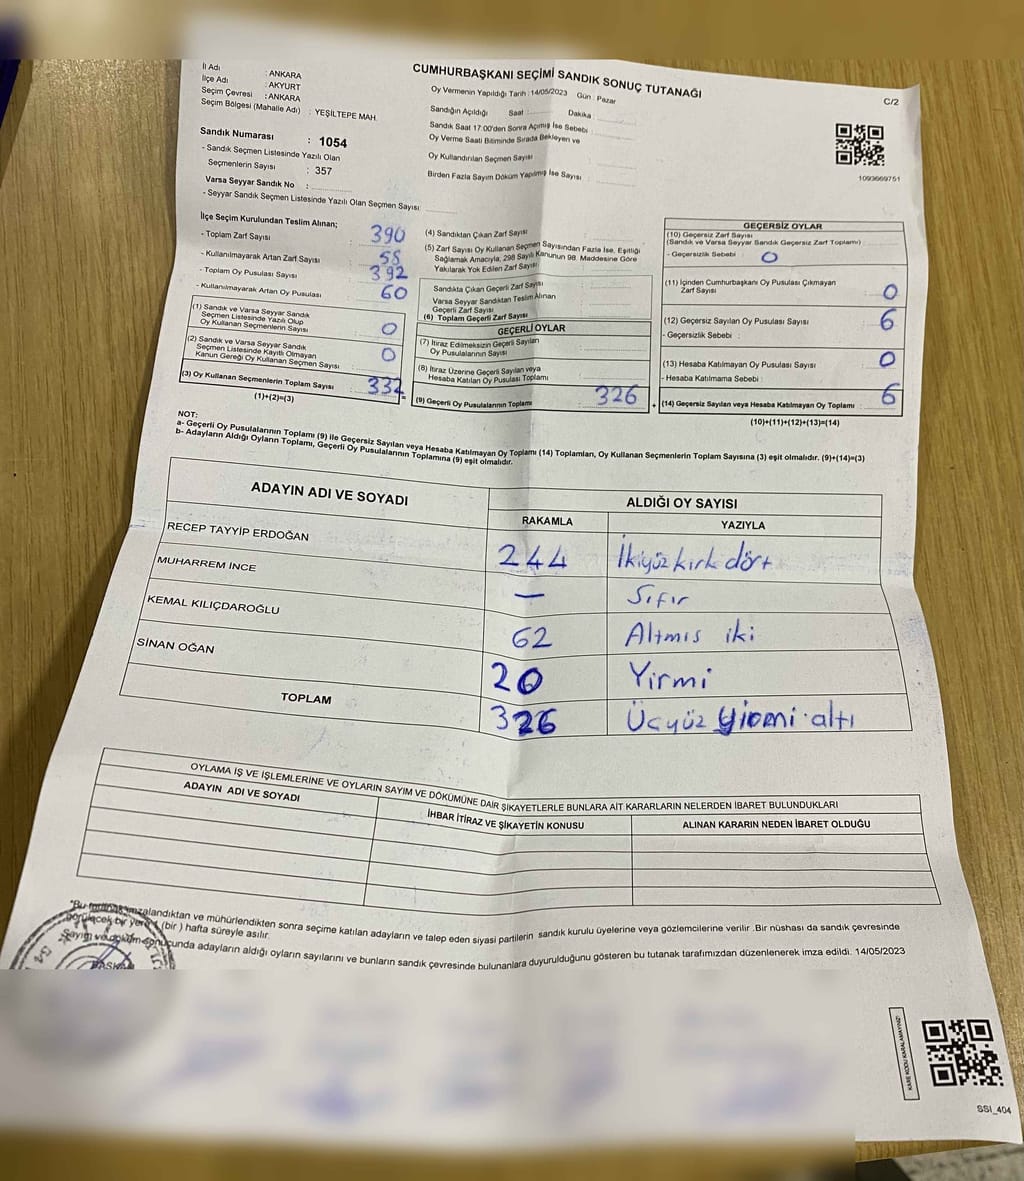 CUMHURBAŞKANI SEÇİMİ SANDIK SONUÇ TUTANAĞI
C/2
İl Adı : ANKARA
İlçe Adı : AKYURT
Seçim Çevresi : ANKARA
Seçim Bölgesi (Mahalle Adı) : YEŞİLTEPE MAH.
Sandık Numarası : 1054
- Sandık Seçmen Listesinde Yazılı Olan
Seçmenlerin Sayısı : 357
Varsa Seyyar Sandık No :
- Seyyar Sandık Seçmen Listesinde Yazılı Olan Seçmen Sayısı
Oy Vermenin Yapıldığı Tarih : 14/05/2023 Gün : Pazar
Sandığın Açıldığı Saat : Dakika
Sandık Saat 17:00'den Sonra Açımış İse Sebebi :
Oy Verme Saati Bitiminde Sırada Bekleyen ve
Oy Kullandırılan Seçmen Sayısı
Birden Fazla Sayım Döküm Yapılmış İse Sayısı :
1093669751
İlçe Seçim Kurulundan Teslim Alınan;
- Toplam Zarf Sayısı 390
- Kullanılmayarak Artan Zarf Sayısı 58
- Toplam Oy Pusulası Sayısı 392
- Kullanılmayarak Artan Oy Pusulası 60
(1) Sandık ve Varsa Seyyar Sandık
Seçmen Listesinde Yazılı Olup
Oy Kullanan Seçmenlerin Sayısı 0
(2) Sandık ve Varsa Seyyar Sandık
Seçmen Listesinde Kayıtlı Olmayan
Kanun Gereği Oy Kullanan Seçmen Sayısı 0
(3) Oy Kullanan Seçmenlerin Toplam Sayısı 332 =
(1)+(2)=(3)
(4) Sandıktan Çıkan Zarf Sayısı
(5) Zarf Sayısı Oy Kullanan Seçmen Sayısından Fazla İse, Eşitliği
Sağlamak Amacıyla; 298 Sayılı Kanunun 98. Maddesine Göre
Yakılarak Yok Edilen Zarf Sayısı
Sandıkta Çıkan Geçerli Zarf Sayısı
Varsa Seyyar Sandıktan Teslim Alınan
Geçerli Zarf Sayısı
(6) Toplam Geçerli Zarf Sayısı
GEÇERLİ OYLAR
(7) İtiraz Edilmeksizin Geçerli Sayılan
Oy Pusulalarının Sayısı
(8) İtiraz Üzerine Geçerli Sayılan veya
Hesaba Katılan Oy Pusulası Toplamı
(9) Geçerli Oy Pusulalarının Toplamı 326 +
GEÇERSİZ OYLAR
(10) Geçersiz Zarf Sayısı
(Sandık ve Varsa Seyyar Sandık Geçersiz Zarf Toplamı) :
- Geçersizlik Sebebi : 0
(11) İçinden Cumhurbaşkanı Oy Pusulası Çıkmayan
Zarf Sayısı 0
(12) Geçersiz Sayılan Oy Pusulası Sayısı : 6
- Geçersizlik Sebebi :
(13) Hesaba Katılmayan Oy Pusulası Sayısı : 0
- Hesaba Katılmama Sebebi :
(14) Geçersiz Sayılan veya Hesaba Katılmayan Oy Toplamı : 6
(10)+(11)+(12)+(13)=(14)
NOT:
a- Geçerli Oy Pusulalarının Toplamı (9) ile Geçersiz Sayılan veya Hesaba Katılmayan Oy Toplamı (14) Toplamları, Oy Kullanan Seçmenlerin Toplam Sayısına (3) eşit olmalıdır. (9)+(14)=(3)
b- Adayların Aldığı Oyların Toplamı, Geçerli Oy Pusulalarının Toplamına (9) eşit olmalıdır.
ADAYIN ADI VE SOYADI ALDIĞI OY SAYISI
RAKAMLA YAZIYLA
RECEP TAYYİP ERDOĞAN 244 İkiyüz kırk dört
MUHARREM İNCE — Sıfır
KEMAL KILIÇDAROĞLU 62 Altmıs iki
SİNAN OĞAN 20 Yirmi
TOPLAM 326 Üçyüz yirmi altı
OYLAMA İŞ VE İŞLEMLERİNE VE OYLARIN SAYIM VE DÖKÜMÜNE DAİR ŞİKAYETLERLE BUNLARA AİT KARARLARIN NELERDEN İBARET BULUNDUKLARI
ADAYIN ADI VE SOYADI İHBAR İTİRAZ VE ŞİKAYETİN KONUSU ALINAN KARARIN NEDEN İBARET OLDUĞU
*Bu tutanak imzalandıktan ve mühürlendikten sonra seçime katılan adayların ve talep eden siyasi partilerin sandık kurulu üyelerine veya gözlemcilerine verilir .Bir nüshası da sandık çevresinde
görülecek bir yere 1 (bir ) hafta süreyle asılır.
Sayım ve döküm sonucunda adayların aldığı oyların sayılarını ve bunların sandık çevresinde bulunanlara duyurulduğunu gösteren bu tutanak tarafımızdan düzenlenerek imza edildi. 14/05/2023
BAŞKAN
KARE KODU KARALAMAYINIZ!
SSI_404